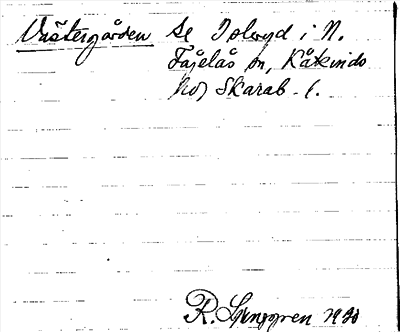 Västergården Se Tolvryd i N.
Fågelås sn, Kåkinds
hd, Skarab. l.
R. Ljunggren 1930